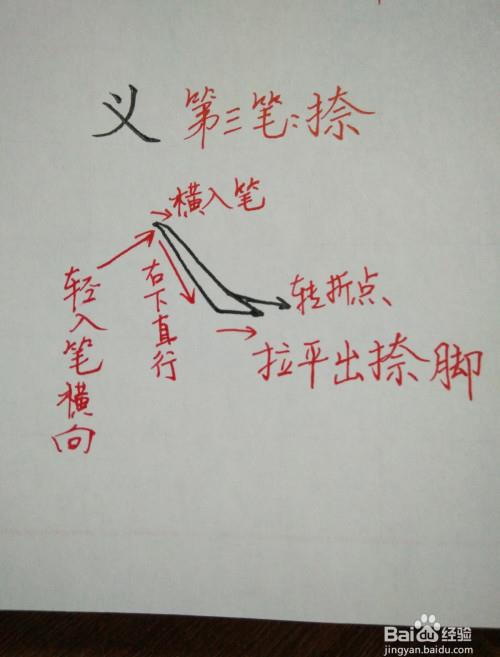 义 第三笔:捺
横入笔
轻入笔横向
右下直行
转折点、
拉平出捺脚
Baidu经验
jingyan.baidu.com